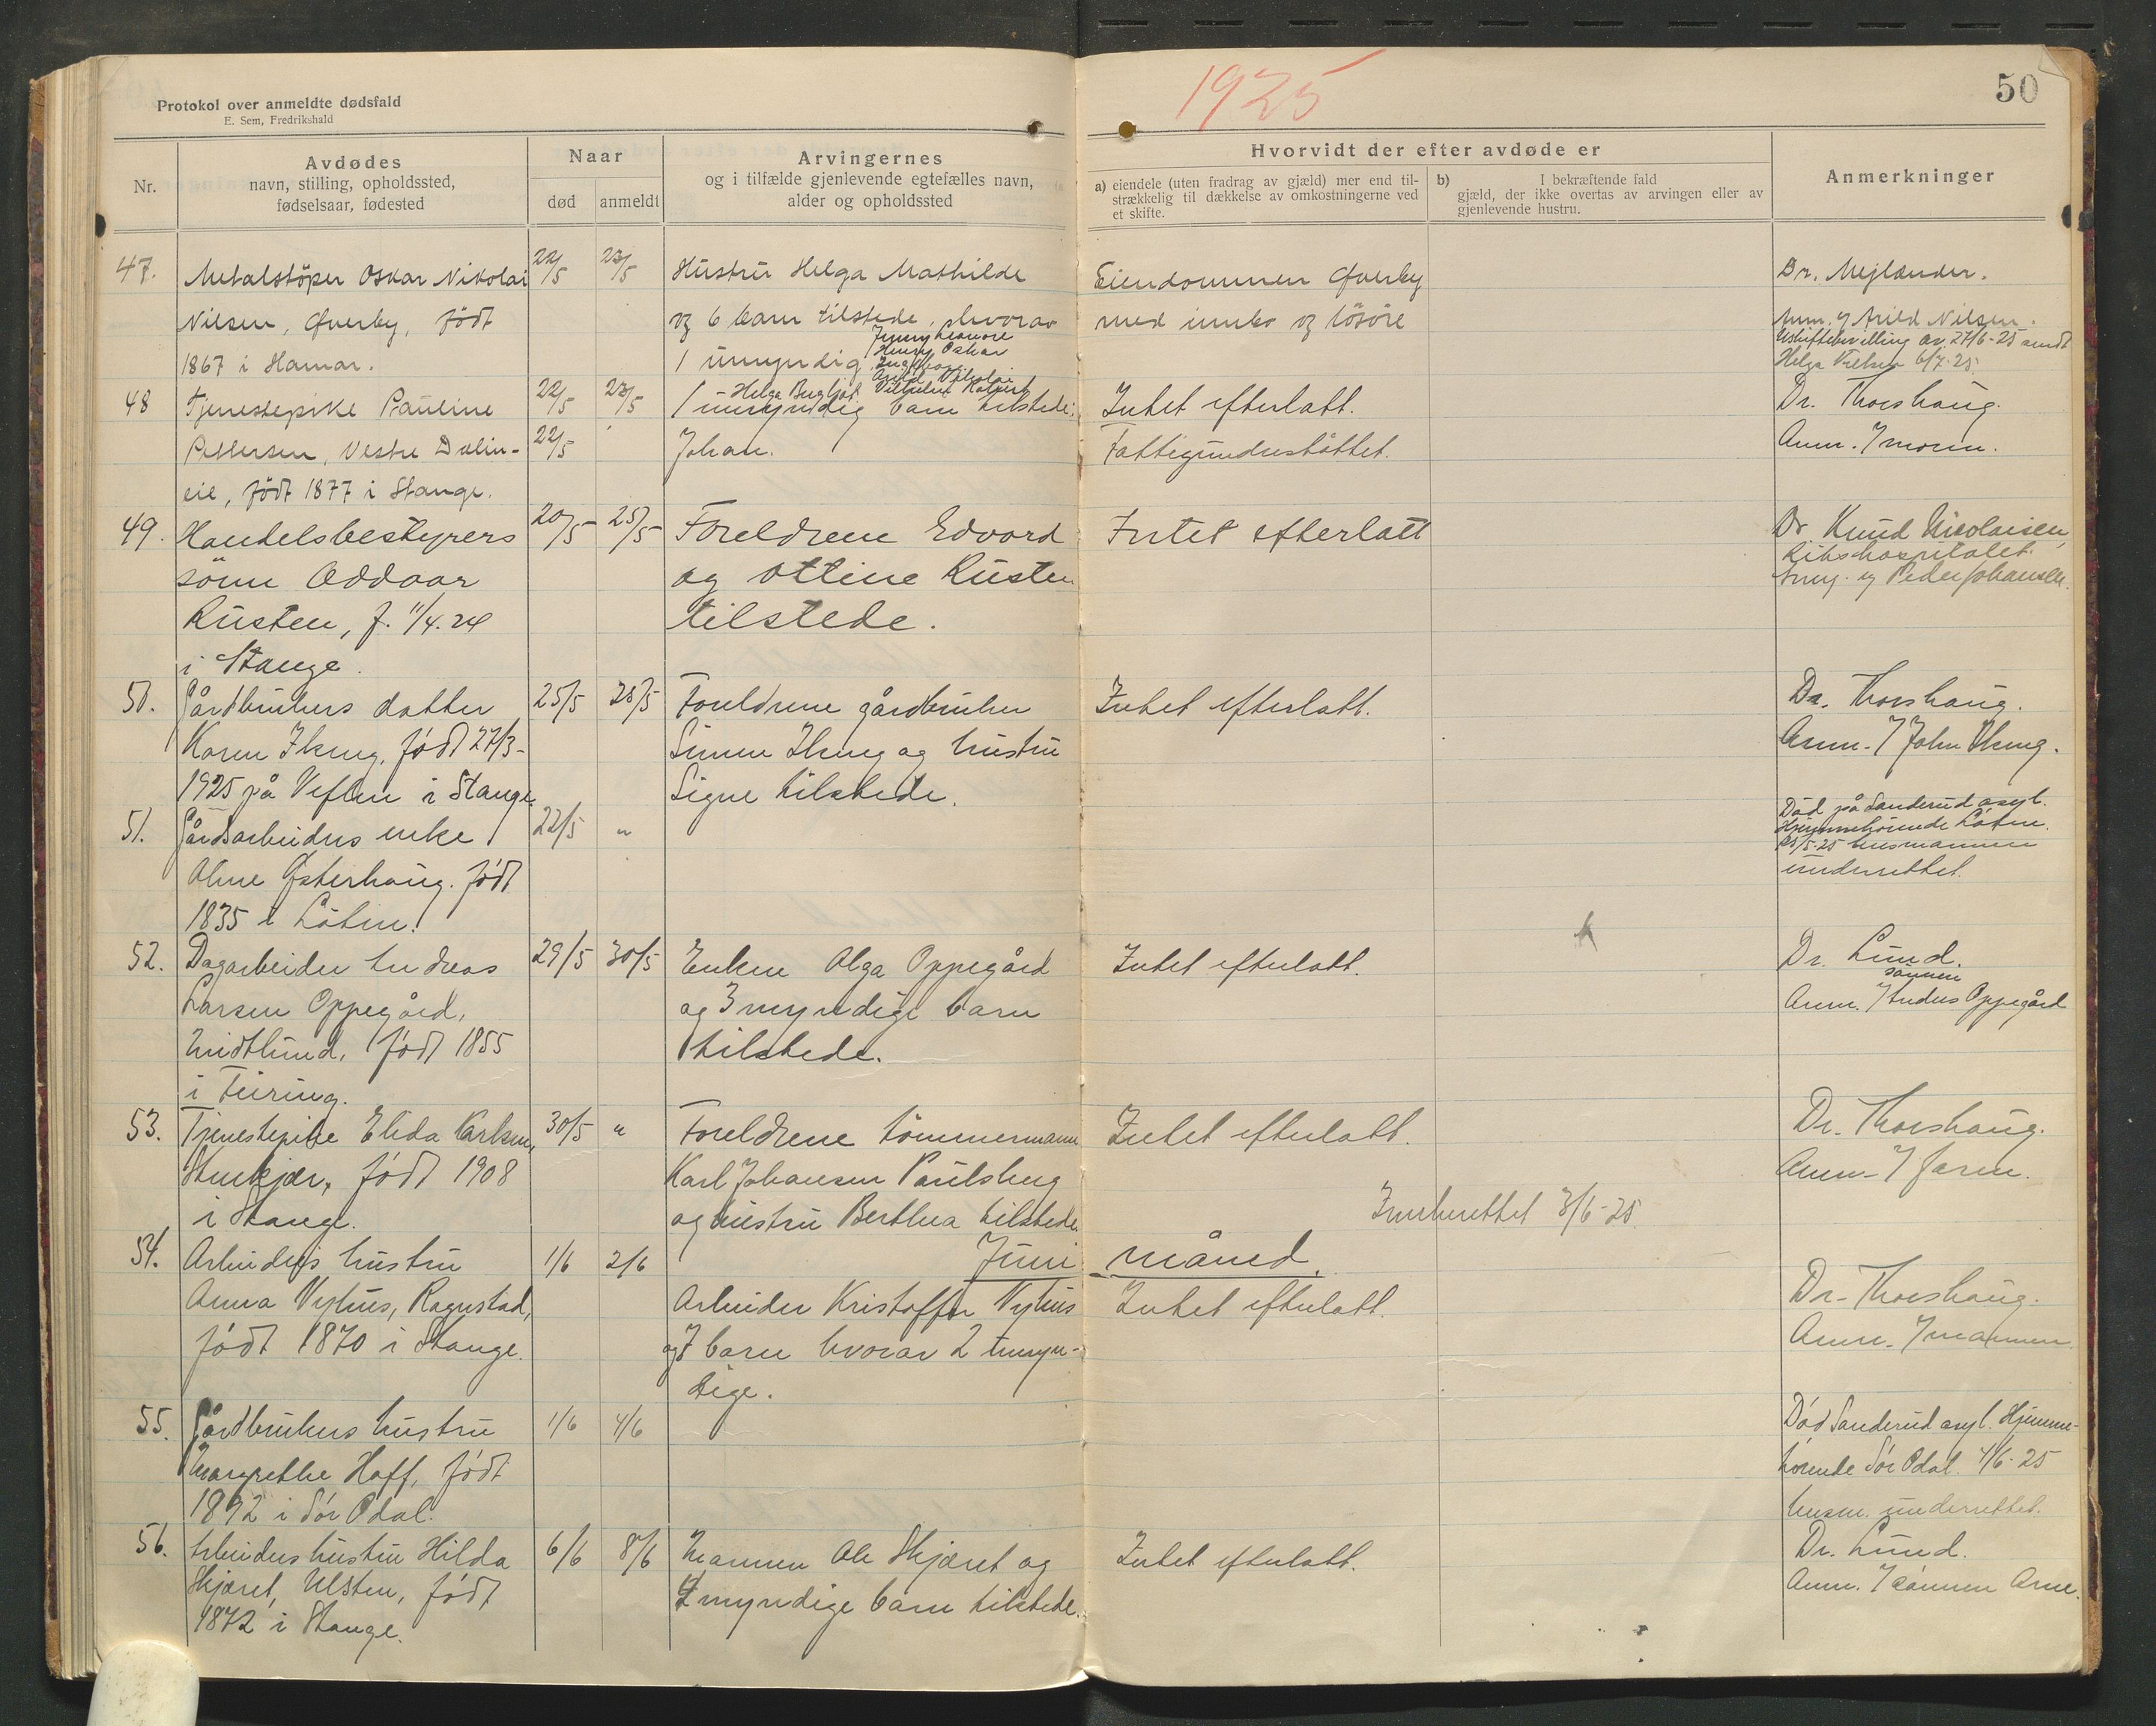 1925
50
Protokol over anmeldte dødsfald
E. Sem, Fredrikshald
Nr.
Avdødes
navn, stilling, opholdssted,
fødselsaar, fødested
Naar
død
anmeldt
Arvingernes
og i tilfælde gjenlevende egtefælles navn,
alder og opholdssted
Hvorvidt der efter avdøde er
a) eiendele (uten fradrag av gjæld) mer end til-
strækkelig til dækkelse av omkostningerne ved
et skifte.
b) I bekræftende fald
gjæld, der ikke overtas av arvingen eller av
gjenlevende hustru.
Anmerkninger
47.
Metalstöper Oskar Nikolai
Nilsen, Øverby, født
1867 i Hamar.
22/5
23/5
Hustru Helga Mathilde
og 6 barn tilstede, hvorav
1 umyndig
Jenny Leonore
Henny Oskar
Helga Bergljot
Eiendommen Øverby
med innbo og lösöre
Dr. Mejlænder.
Anm. Arild Nilsen.
Uskiftebevilling av 27/6-25 sendt
Helga Nilsen 6/7-25.
48
Tjenestepike Pauline
Pettersen, Vestre Dælin-
eie, født 1877 i Stange.
22/5
22/5
23/5
1 umyndig barn tilstede:
Johan.
Intet efterlatt.
Fattigunderstøttet.
Dr. Thorshaug.
Anm. moren.
49.
Handelsbestyrers
sönn Oddvar
Rusten, f. 11/4.24
i Stange.
20/5
25/5
Foreldrene Edvard
og Ottine Rusten
tilstede.
Intet efterlatt
Dr. Knud Nicolaisen,
Rikshospitalet.
Peder Johansen.
50.
Gårdbrukers datter
Karen Iheng, født 27/3-
1925 på Veflen i Stange
25/5
28/5
Foreldrene gårdbruker
Simen Iheng og hustru
Signe tilstede.
Intet efterlatt.
Dr. Thorshaug.
Anm. John Iheng.
51.
Gårdsarbeiders enke
Oline Østerhaug. født
1835 i Løten.
22/5
"
Død på Sanderud asyl.
Hjemmehörende Løten.
28/5-25 lensmannen
underrettet.
52.
Dagarbeider Andreas
Larsen Oppegård,
Midtlund, født 1855
i Feiring.
29/5
30/5
Enken Olga Oppegård
og 3 myndige barn
tilstede.
Intet efterlatt.
Dr. Lund.
sönnen
Anm. Anders Oppegård
53.
Tjenestepike Elida Karlsen,
født 1908
i Stange.
30/5
"
Foreldrene tömmermann
Karl Johansen Paulsheng
og hustru Berthea tilstede
Intet efterlatt.
Innberettet 3/6-25
Dr. Thorshaug.
Anm. faren.
Juni måned.
54.
Arbeiders hustru
Anna Nyhus, Rognstad,
født 1870 i Stange.
1/6
2/6
Arbeider Kristoffer Nyhus
og 7 barn hvorav 2 umyn-
dige.
Intet efterlatt.
Dr. Thorshaug.
Anm. mannen.
55.
Gårdbrukers hustru
Margrethe Hoff, født
1892 i Sør Odal.
1/6
4/6
Død Sanderud asyl. Hjemme-
hörende Sør Odal. 4/6-25
lensm. underrettet.
56.
Arbeiders hustru Hilda
Skjæret, Ulsten, født
1872 i Stange.
6/6
8/6
Mannen Ole Skjæret og
4 myndige barn tilstede.
Intet efterlatt.
Dr. Lund.
Anm. sönnen Arne.